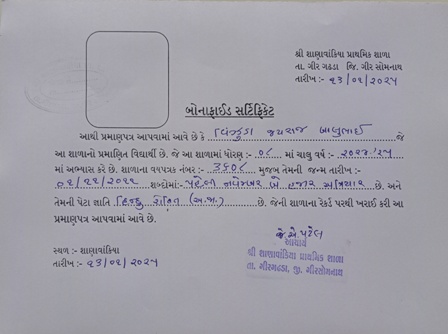 શ્રી શાણાવાંકિયા પ્રાથમિક શાળા
તા. ગીર ગઢડા જિ. ગીર સોમનાથ
તારીખ :- ૨૩/૦૧/૨૦૨૫
બોનાફાઈડ સર્ટિફિકેટ
આથી પ્રમાણપત્ર આપવામાં આવે છે કે જયરાજ બાલુભાઈ જે
આ શાળાનો પ્રમાણિત વિદ્યાર્થી છે. જે આ શાળામાં ધોરણ :- ૦૮ માં ચાલુ વર્ષ :- ૨૦૨૪/૨૫
માં અભ્યાસ કરે છે. શાળાના વયપત્રક નંબર :- ૩૬૦૮ મુજબ તેમની જન્મ તારીખ :-
શબ્દોમાં:- પહેલી નવેમ્બર બે હજાર છે. અને
તેમની પેટા જ્ઞાતિ હિન્દુ (અ.જા.) છે. જેની શાળાના રેકર્ડ પરથી ખરાઈ કરી આ
પ્રમાણપત્ર આપવામાં આવે છે.
સ્થળ :- શાણાવાંકિયા
તારીખ :- ૨૩/૦૧/૨૦૨૫
જે.એ.પટેલ
આચાર્ય
શ્રી શાણાવાંકિયા પ્રાથમિક શાળા
તા. ગીરગઢડા, જી. ગીરસોમનાથ